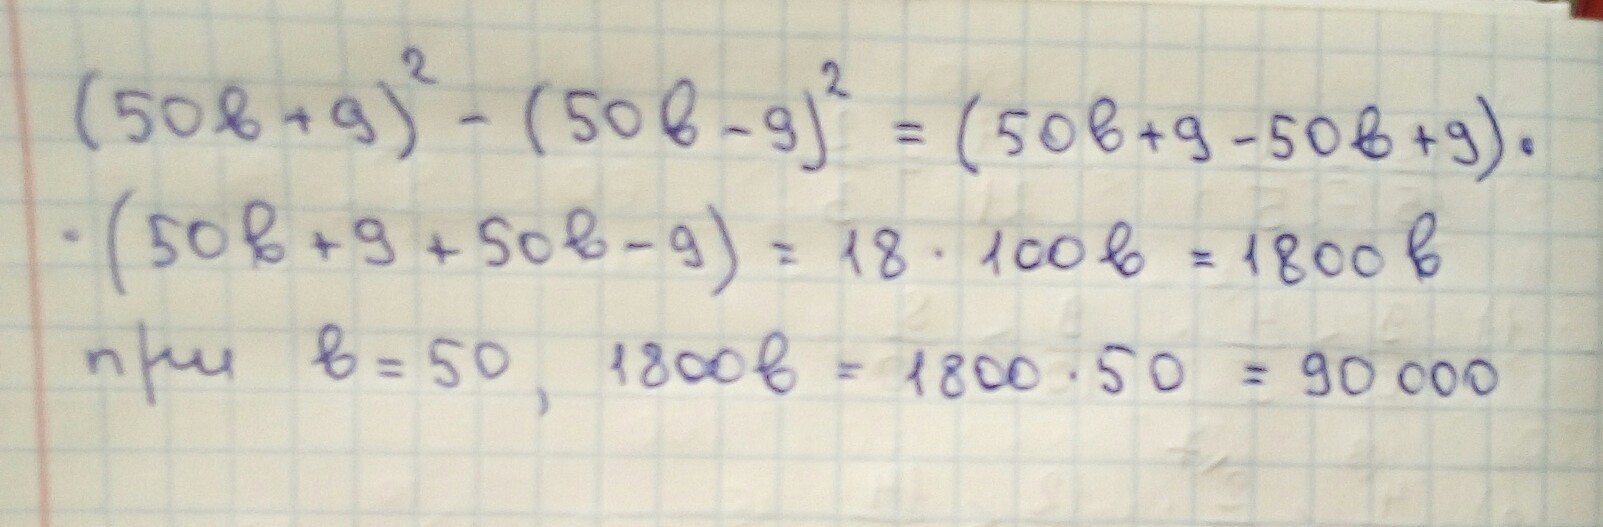 (50в+9)² - (50в-9)² = (50в+9-50в+9)·
·(50в+9+50в-9) = 18 · 100в = 1800в
при в=50, 1800в = 1800·50 = 90 000